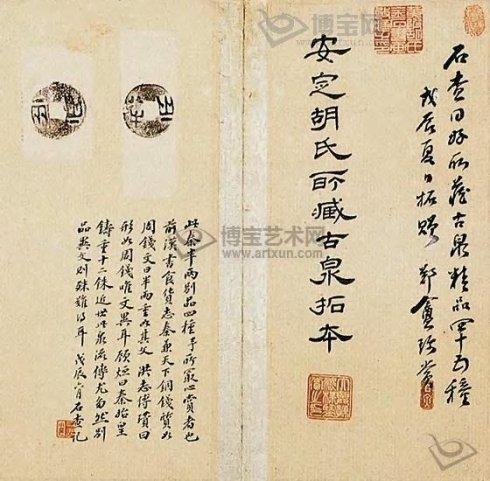 石查同好所藏古泉精品四十五種
戊辰夏日拓贈 鄭盦珍賞
安定胡氏所藏古泉拓本
此秦半兩別品四種予所最心賞者也
前漢書食貨志秦兼天下銅錢質如
周錢文曰半兩重如其文 洪志傅瓚曰
形如周錢唯文異耳顧烜曰秦始皇
鑄重十二銖近世此泉流傳尤多然別
品異文則殊難得耳 戊辰六月石查記
博宝艺术网
www.artxun.com